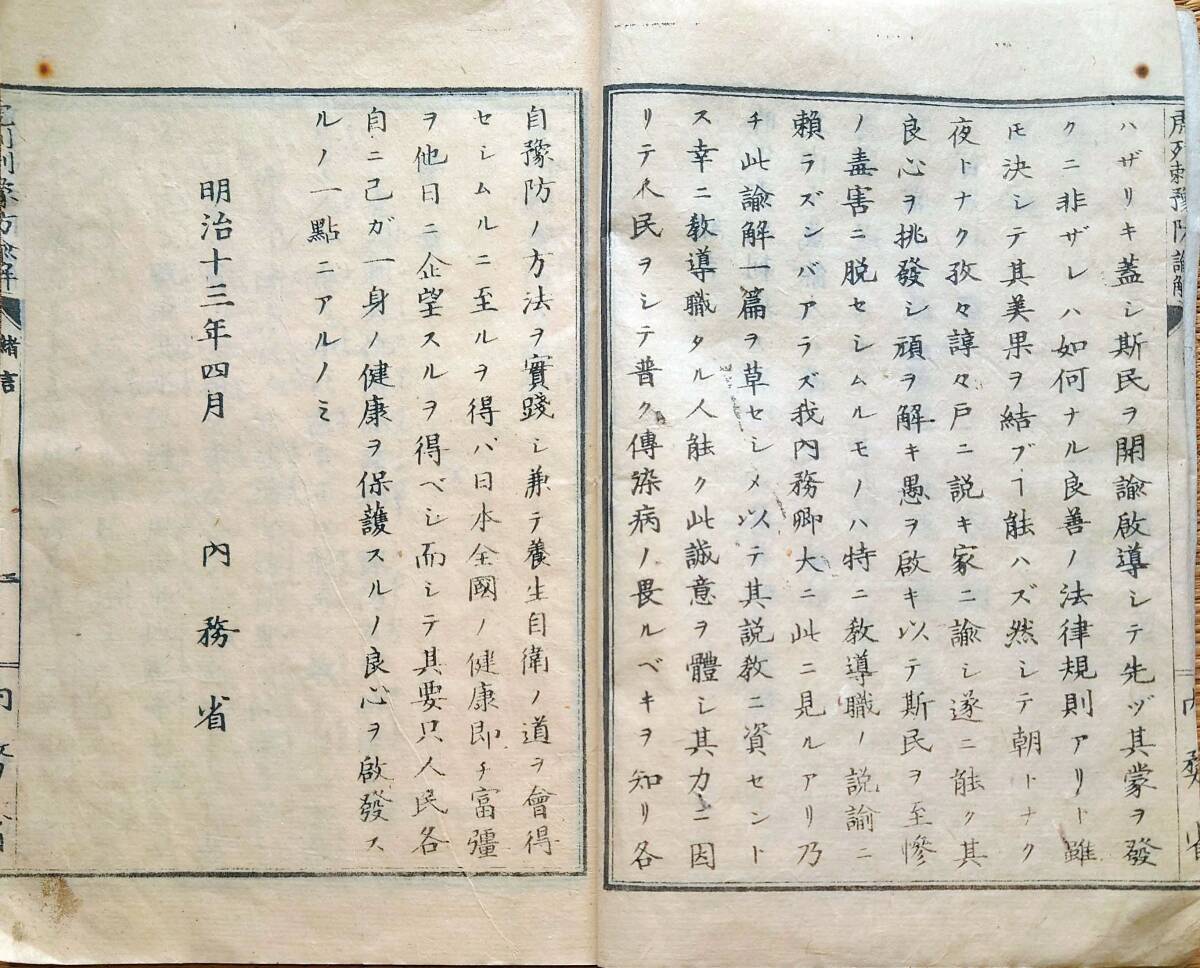 虎列剌豫防諭解
内務省
ハザリキ蓋シ斯民ヲ開諭啟導シテ先ヅ其蒙ヲ發
クニ非ザレハ如何ナル良善ノ法律規則アリト雖
モ決シテ其美果ヲ結ブヿ能ハズ然シテ朝トナク
夜トナク孜々諄々戸ニ説キ家ニ諭シ遂ニ能ク其
良心ヲ挑發シ頑ヲ解キ愚ヲ啟キ以テ斯民ヲ至慘
ノ毒害ニ脱セシムルモノハ特ニ教導職ノ説諭ニ
賴ラズンバアラズ我内務卿大ニ此ニ見ルアリ乃
チ此諭解一篇ヲ草セシメ以テ其説教ニ資セント
ス幸ニ教導職タル人能ク此誠意ヲ體シ其力ニ因
リテ人民ヲシテ普ク傳染病ノ畏ルベキヲ知リ各
自豫防ノ方法ヲ實踐シ兼テ養生自衛ノ道ヲ會得
セシムルニ至ルヲ得バ日本全國ノ健康即チ富彊
ヲ他日ニ企望スルヲ得ベシ而シテ其要只人民各
自ニ己ガ一身ノ健康ヲ保護スルノ良心ヲ啟發ス
ルノ一點ニアルノミ
明治十三年四月 内務省
緒言